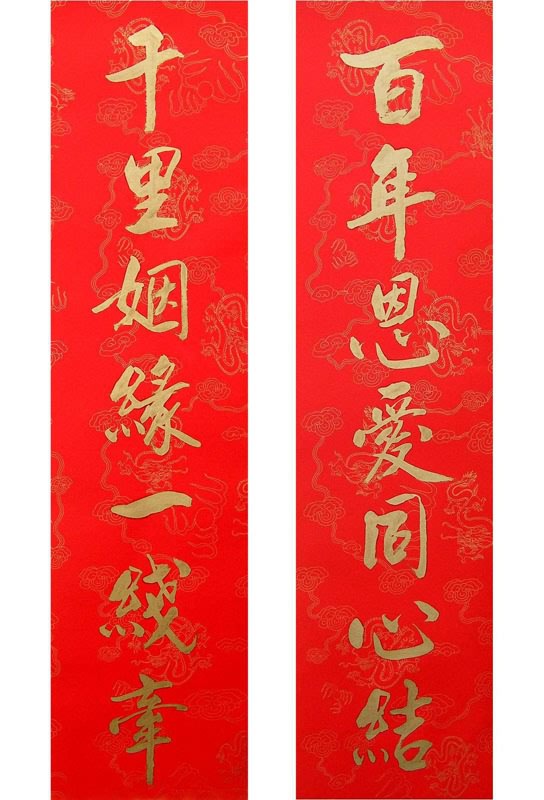 百年恩愛同心結
千里姻緣一綫牽